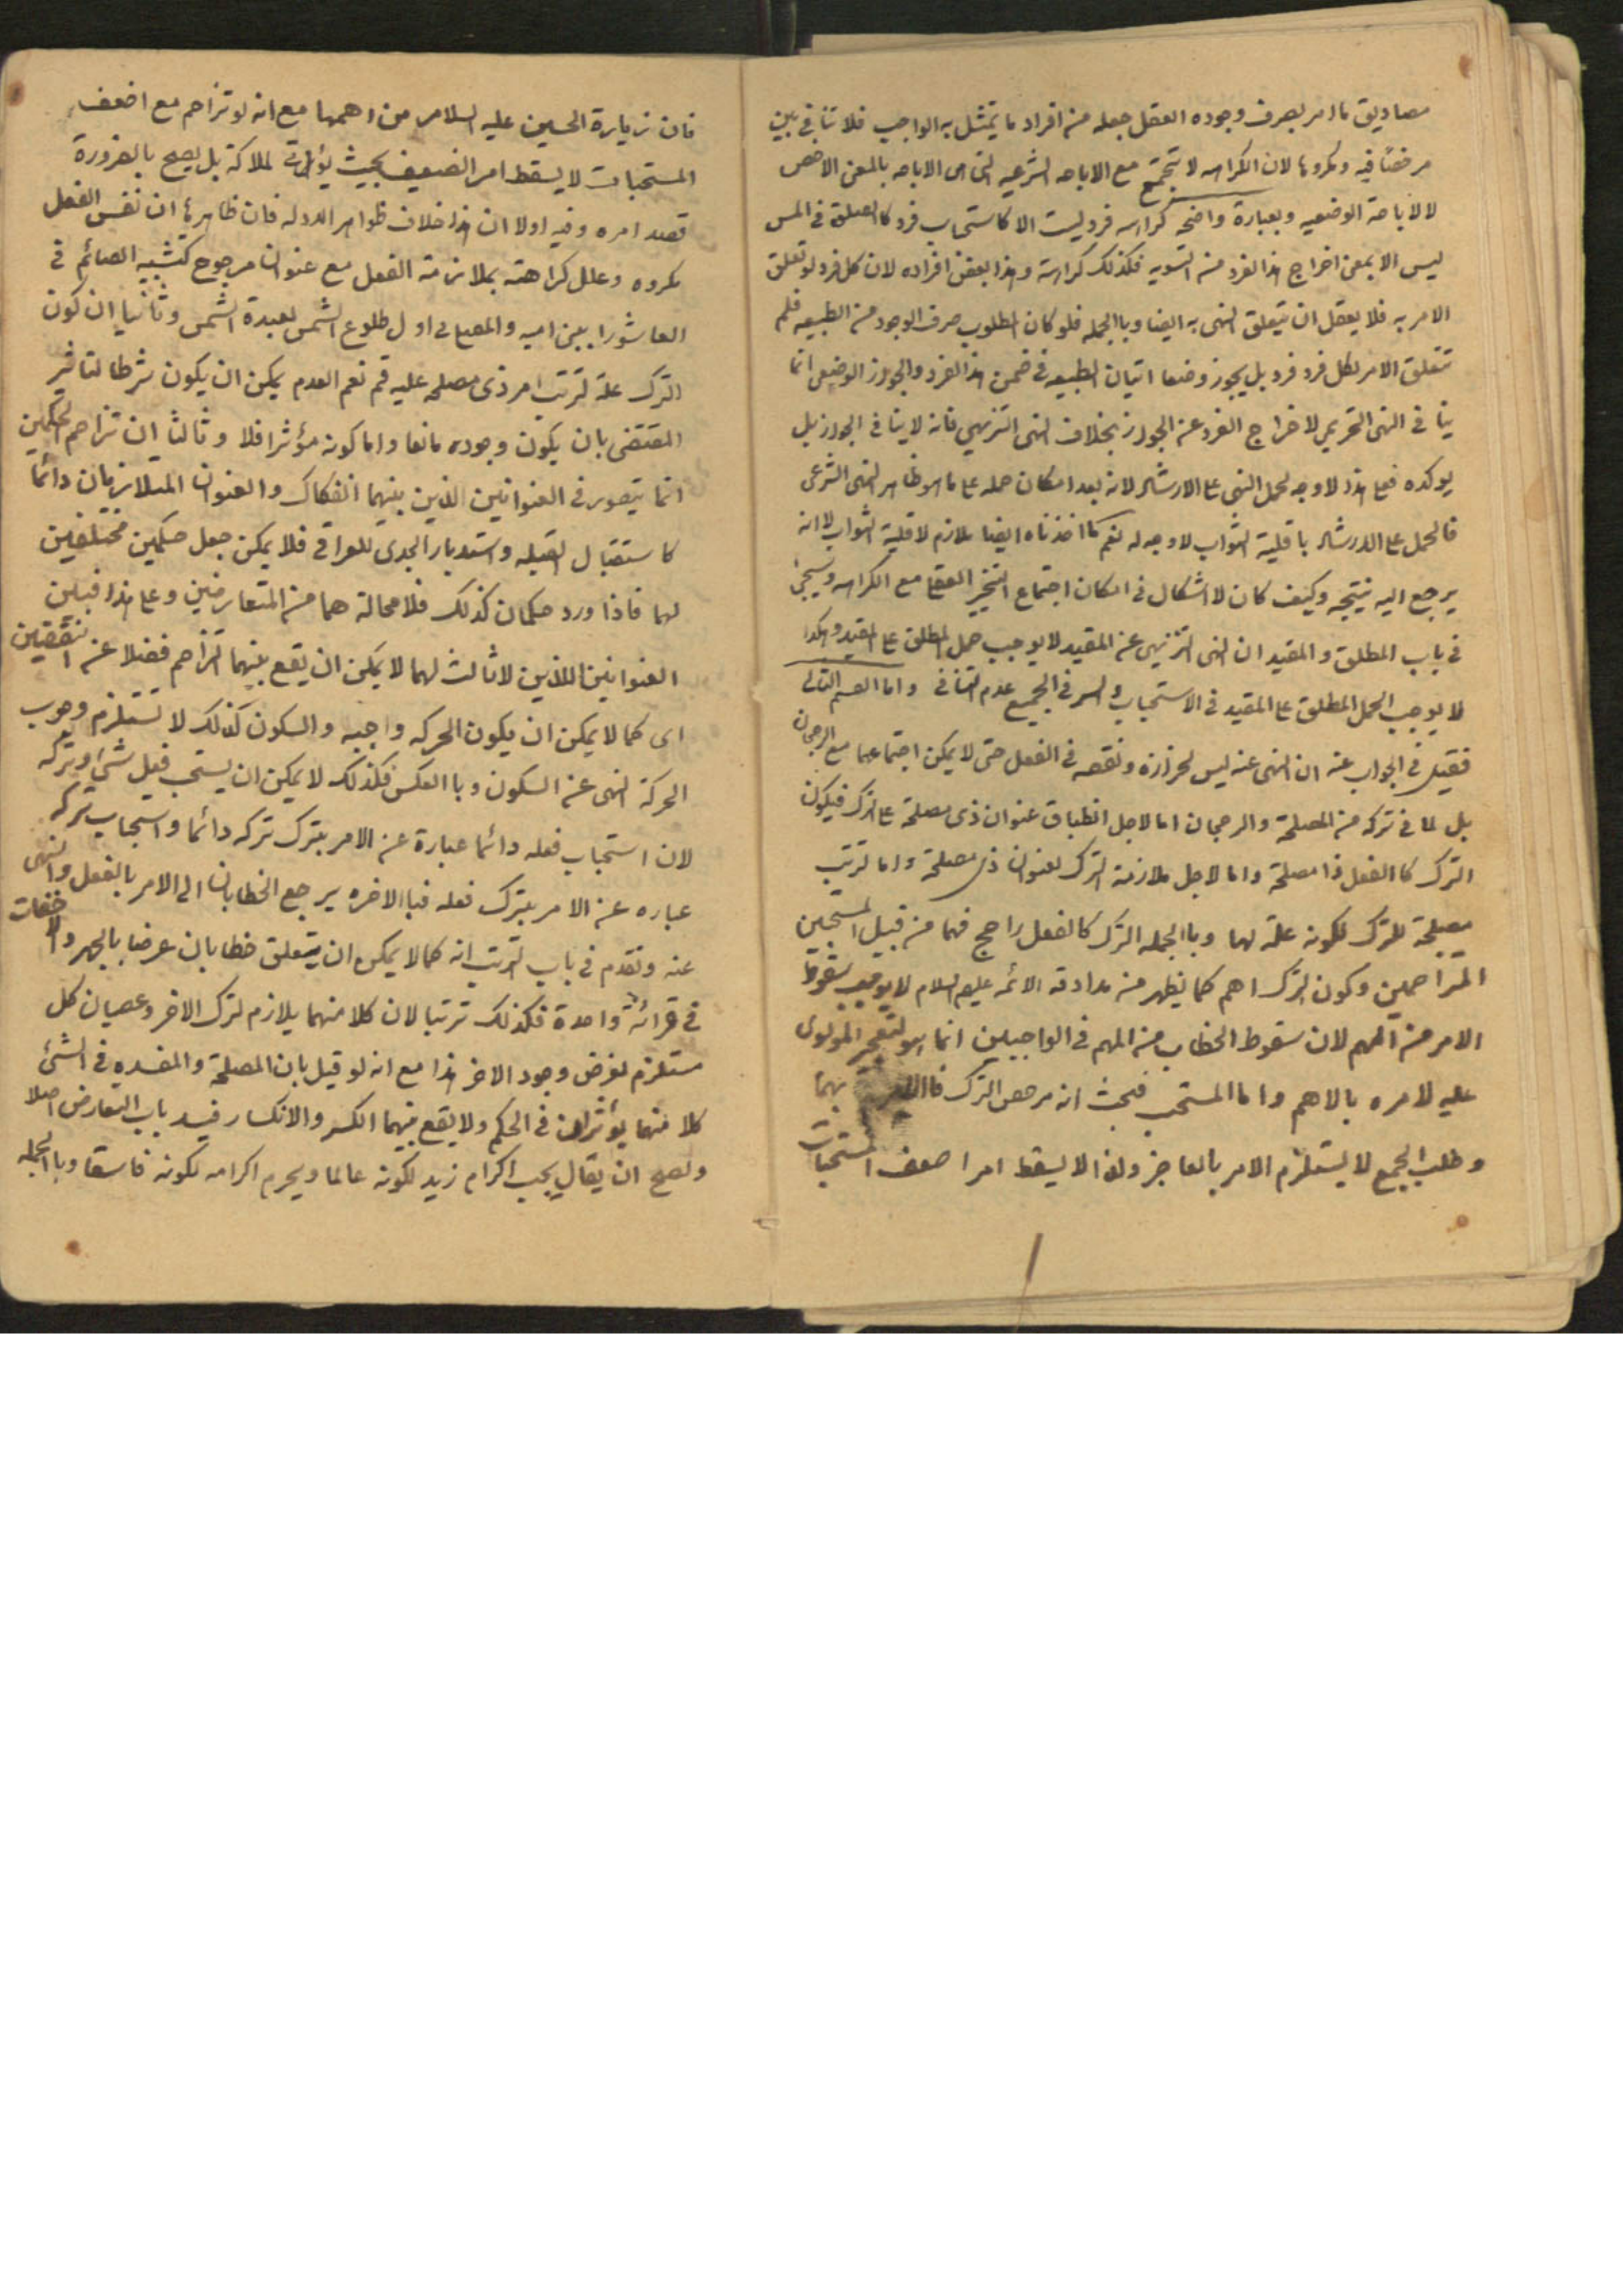 مصاديق ما امر بصرف وجوده العقل جعله من افراد ما يتمثل به الواجب فلا تنافي بين
مرخصا فيه ومكروها لان الكراهه لا تجتمع مع الاباحه الشرعيه التى هى الاباحه بالمعنى الاخص
لا الاباحة الوضعيه وبعبارة واضحه كراهه فرد ليست الا كاستحباب فرد كالصلوة في المس
ليس الا بمعنى اخراج هذا الفرد من التسويه فكذلك كراهة هذا بعض افراده لان كل فرد لو تعلق
الامر به فلا يعقل ان يتعلق النهى به ايضا وبا الجمله فلو كان المطلوب صرف الوجود من الطبيعه فلم
تتعلق الامر بكل فرد فرد بل يجوز وضعا اتيان الطبيعه في ضمن هذا الفرد والجواز الوضعى انما
ينافى النهى التحريمى لاخراج الفرد عن الجواز بخلاف النهى التنزيهى فانه لا ينافى الجواز بل
يوكده فعلى هذا لا وجه لحمل النهى على الارشاد لانه بعد امكان حمله على ما هو ظاهر النهى الشرعى
فالحمل على الارشاد باقلية الثواب لا وجه له نعم كما اخذناه ايضا ملازم لاقلية الثواب لا انه
يرجع اليه نتيجه وكيف كان لا اشكال في امكان اجتماع التخيير العقلى مع الكراهه وسيجئ
في باب المطلق والمقيد ان النهى التنزيهى عن المقيد لا يوجب حمل المطلق على المقيد وهكذا
لا يوجب الحمل المطلق على المقيد فى الاستحباب والسر فى الجميع عدم التنافى واما القسم الثانى
فقيل فى الجواب عنه ان النهى عنه ليس لحزازة ونقصه فى الفعل حتى لا يمكن اجتماعها مع الرجحان
بل لما فى تركه من المصلحة والرجحان اما لاجل انطباق عنوان ذى مصلحة على الترك فيكون
الترك كا الفعل ذا مصلحة واما لاجل ملازمة الترك لعنوان ذى مصلحة واما ترتب
مصلحة للترك لكونه علة لها وبا الجمله الترك كالفعل راجح فهما من قبيل المستحبين
المتزاحمين وكون الترك اهم كما يظهر من مداومة الائمه عليهم السلام لا يوجب سقوط
الامر من المهم لان سقوط الخطاب من المهم فى الواجبين انما هو لتعجيز المولوى
عليه لامره بالاهم واما المستحب فحيث انه مرخص الترك فاالامر بهما
وطلب الجمع لا يستلزم الامر بالعاجز ولذا لا يسقط امر اضعف المستحبات
فان زيارة الحسين عليه السلام من اهمها مع انه لو تزاحم مع اضعف
المستحبات لا يسقط امر الضعيف بحيث يؤتى لملاكة بل يصح بالضرورة
قصد امره وفيه اولا ان هذا خلاف ظواهر الادوله فان ظاهرها ان نفس الفعل
مكروه وعلل كراهته بملازمة الفعل مع عنوان مرجوح كتشبيه الصائم فى
العاشورا ببنى اميه والمصلى فى اول طلوع الشمس لعبدة الشمس وثانيا ان كون
الترك علة لترتب امر ذى مصلحه عليه فم نعم العدم يمكن ان يكون شرطا لتاثير
المقتضى بان يكون وجوده مانعا واما كونه مؤثرا فلا وثالثا ان تزاحم الحكمين
انما يتصور فى العنوانين الذين بينهما انفكاك والعنوان المتلازمان دائما
كاستقبال القبله واستدبار الجدى للعراقى فلا يمكن جعل حكمين مختلفين
لهما فاذا ورد حكمان كذلك فلا محالة هما من المتعارضين وعلى هذا فبين
العنوانين اللذين لا ثالث لهما لا يمكن ان يقع بينهما التزاحم فضلا عن النقيضين
اى كما لا يمكن ان يكون الحركه واجبه والسكون كذلك لا تستلزم وجوب
الحركة النهى عن السكون وبا العكس فكذلك لا يمكن ان يستحب فعل شئ وتركه
لان استحباب فعله دائما عبارة عن الامر بترك تركه دائما واستحباب تركه
عباره عن الامر بترك فعله فبا الاخره يرجع الخطابان الى الامر بالفعل والنهى
عنه وتقدم فى باب الترتب انه كما لا يمكن ان يتعلق خطابان عرضا بالجهر والاخفات
فى قرائة واحدة فكذلك ترتبا لان كلا منهما يلازم لترك الاخر وعصيان كل
مستلزم لفرض وجود الاخر هذا مع انه لو قيل بان المصلحة والمفسده فى الشئ
كلا منهما يؤثران فى الحكم ولا يقع بينهما الكسر والانكسار فيسد باب التعارض اصلا
ولصح ان يقال يجب اكرام زيد لكونه عالما ويحرم اكرامه لكونه فاسقا وبا الجمله